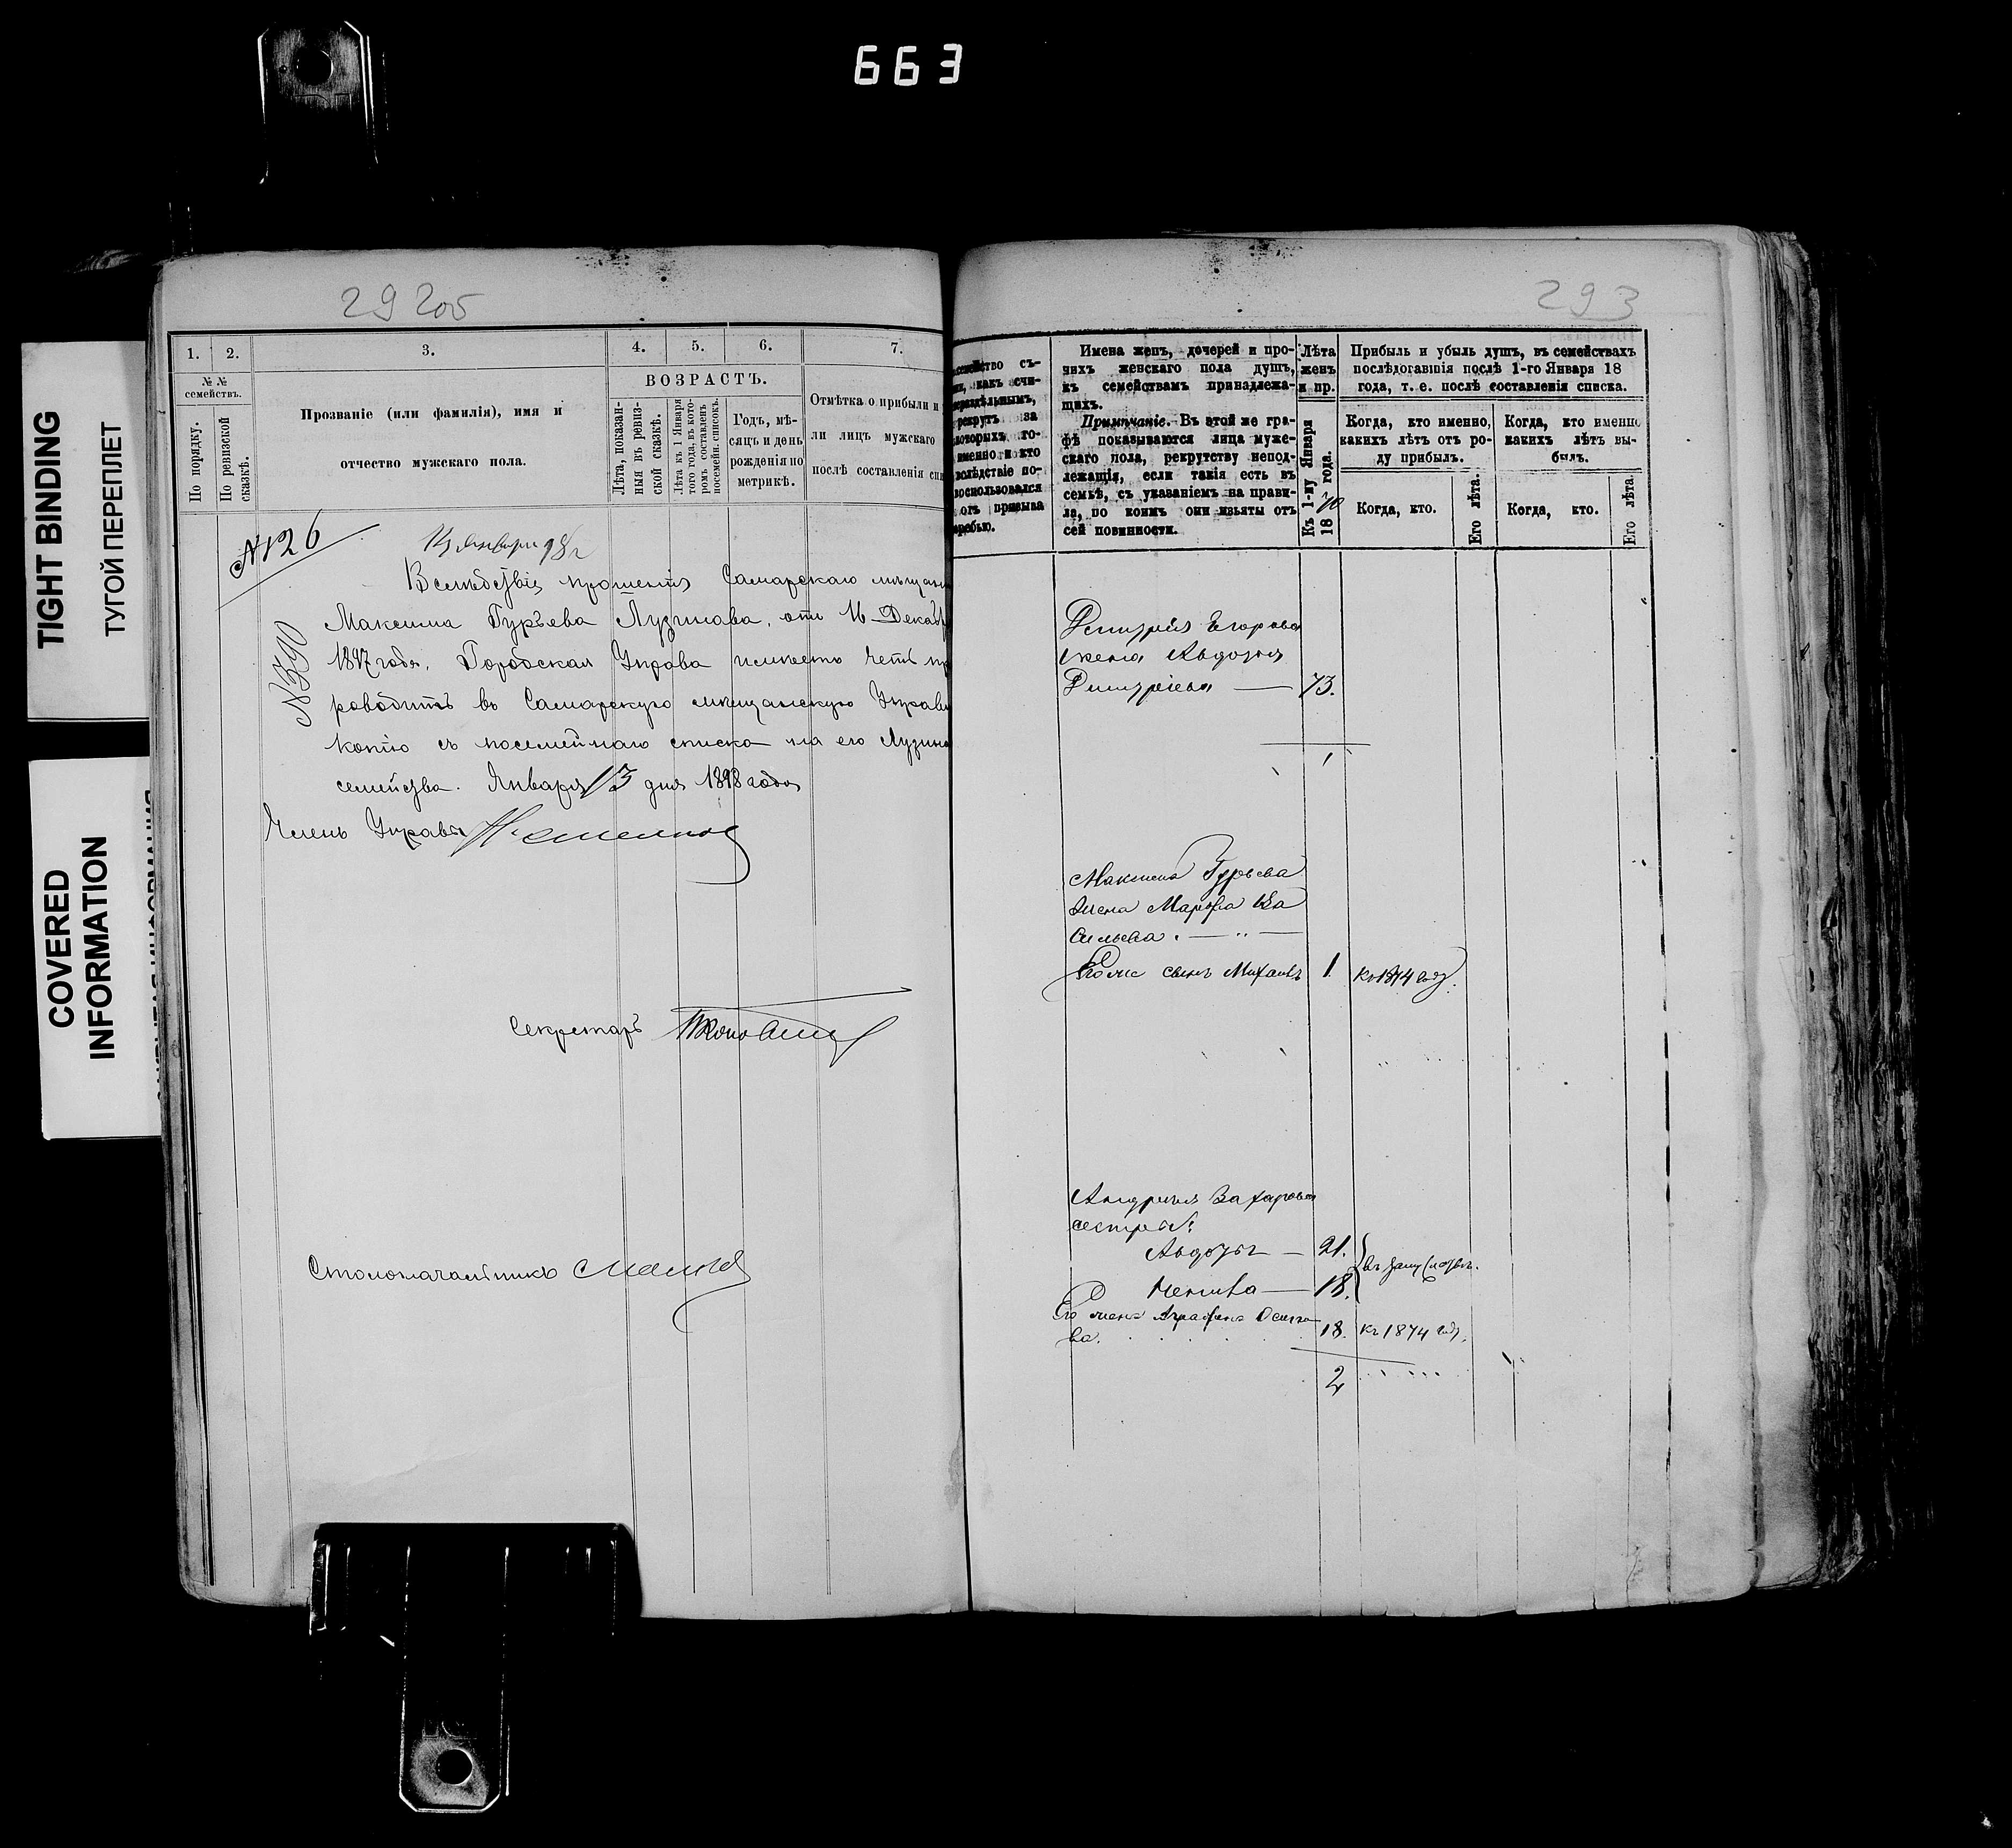 663
TIGHT BINDING
ТУГОЙ ПЕРЕПЛЕТ
COVERED
INFORMATION
292об
1. 2. 3. 4. 5. 6. 7.
№ №
семействъ.
По порядку.
По ревизской
сказкѣ.
Прозваніе (или фамилія), имя и
отчество мужскаго пола.
ВОЗРАСТЪ.
Лѣта, показан-
ныя въ ревиз-
ской сказкѣ.
Лѣта къ 1 Января
того года, въ кото-
ромъ составленъ
посемейн. списокъ.
Годъ, мѣ-
сяцъ и день
рожденія по
метрикѣ.
Отмѣтка о прибыли и
ли лицъ мужскаго
послѣ составленія спи
№126
14 Января 98 г
№390
Вслѣдствіе прошенія Самарскаго мѣщан
Максима Гурьева Лузинова, отъ 16 Декабр
1897 года, Городская Управа имѣетъ честь пр
роводить въ Самарскую мѣщанскую Управ
копію съ посемейнаго списка на его Лузино
семейства. Января 13 дня 1898 года
Членъ Управы
Секретарь
Столоначальникъ
293
семейство съ-
какъ счи-
раздѣльнымъ,
рекрутъ за
которыхъ го-
именно и кто
вслѣдствіе по-
воспользовался
отъ призыва
жребью.
Имена женъ, дочерей и про-
чихъ женскаго пола душъ,
къ семействамъ принадлежа-
щихъ.
Примѣчаніе. Въ этой же гра-
фѣ показываются лица муже-
скаго пола, рекрутству непод-
лежащія, если такія есть въ
семьѣ, съ указаніемъ на прави-
ла, по коимъ они изъяты отъ
сей повинности.
Лѣта
женъ
и пр.
Къ 1-му Января
1870 года.
Прибыль и убыль душъ, въ семействахъ
послѣдовавшія послѣ 1-го Января 18
года, т. е. послѣ составленія списка.
Когда, кто именно,
какихъ лѣтъ отъ ро-
ду прибылъ.
Когда, кто именно
какихъ лѣтъ вы-
былъ.
Когда, кто.
Его лѣта.
Когда, кто.
Его лѣта.
Дмитрія Егорова
жена Авдотья
Дмитріева — 73.
1
Максима Гурьева
жена Марфа Ва
сильева
Его же сынъ Михаилъ 1 къ 1874 году.
Андрея Захарова
сестры:
Авдотья — 21.
18.
Его жена Аграфена Осипо
ва. 18. къ 1874 году.
2